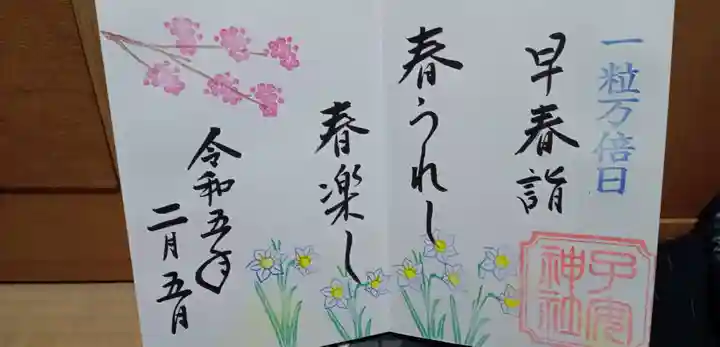 一粒万倍日
早春詣
春うれし
春楽し
令和五年
二月五日
子安神社